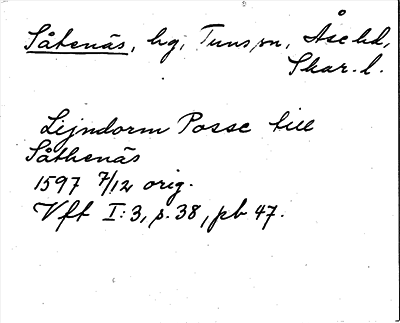 Såtenäs, hg, Tuns sn, Åse hd,
Skar. l.
Lijndorm Posse till
Såthenäs
1597 7/12 orig.
Vft I:3, s. 38, pb 47.